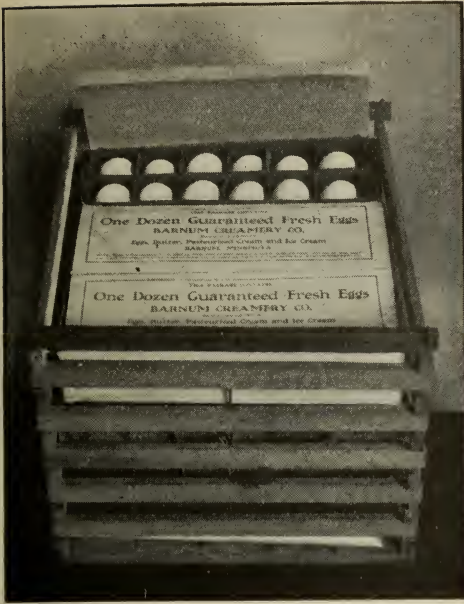 One Dozen Guaranteed Fresh Eggs
BARNUM CREAMERY CO.
Eggs, Butter, Pasteurized Cream and Ice Cream
BARNUM, MINNESOTA
One Dozen Guaranteed Fresh Eggs
BARNUM CREAMERY CO.
Eggs, Butter, Pasteurized Cream and Ice Cream